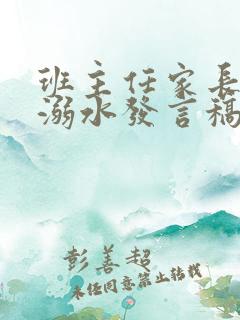 班主任家長
溺水發言稿
彭善超
未經同意禁止轉載